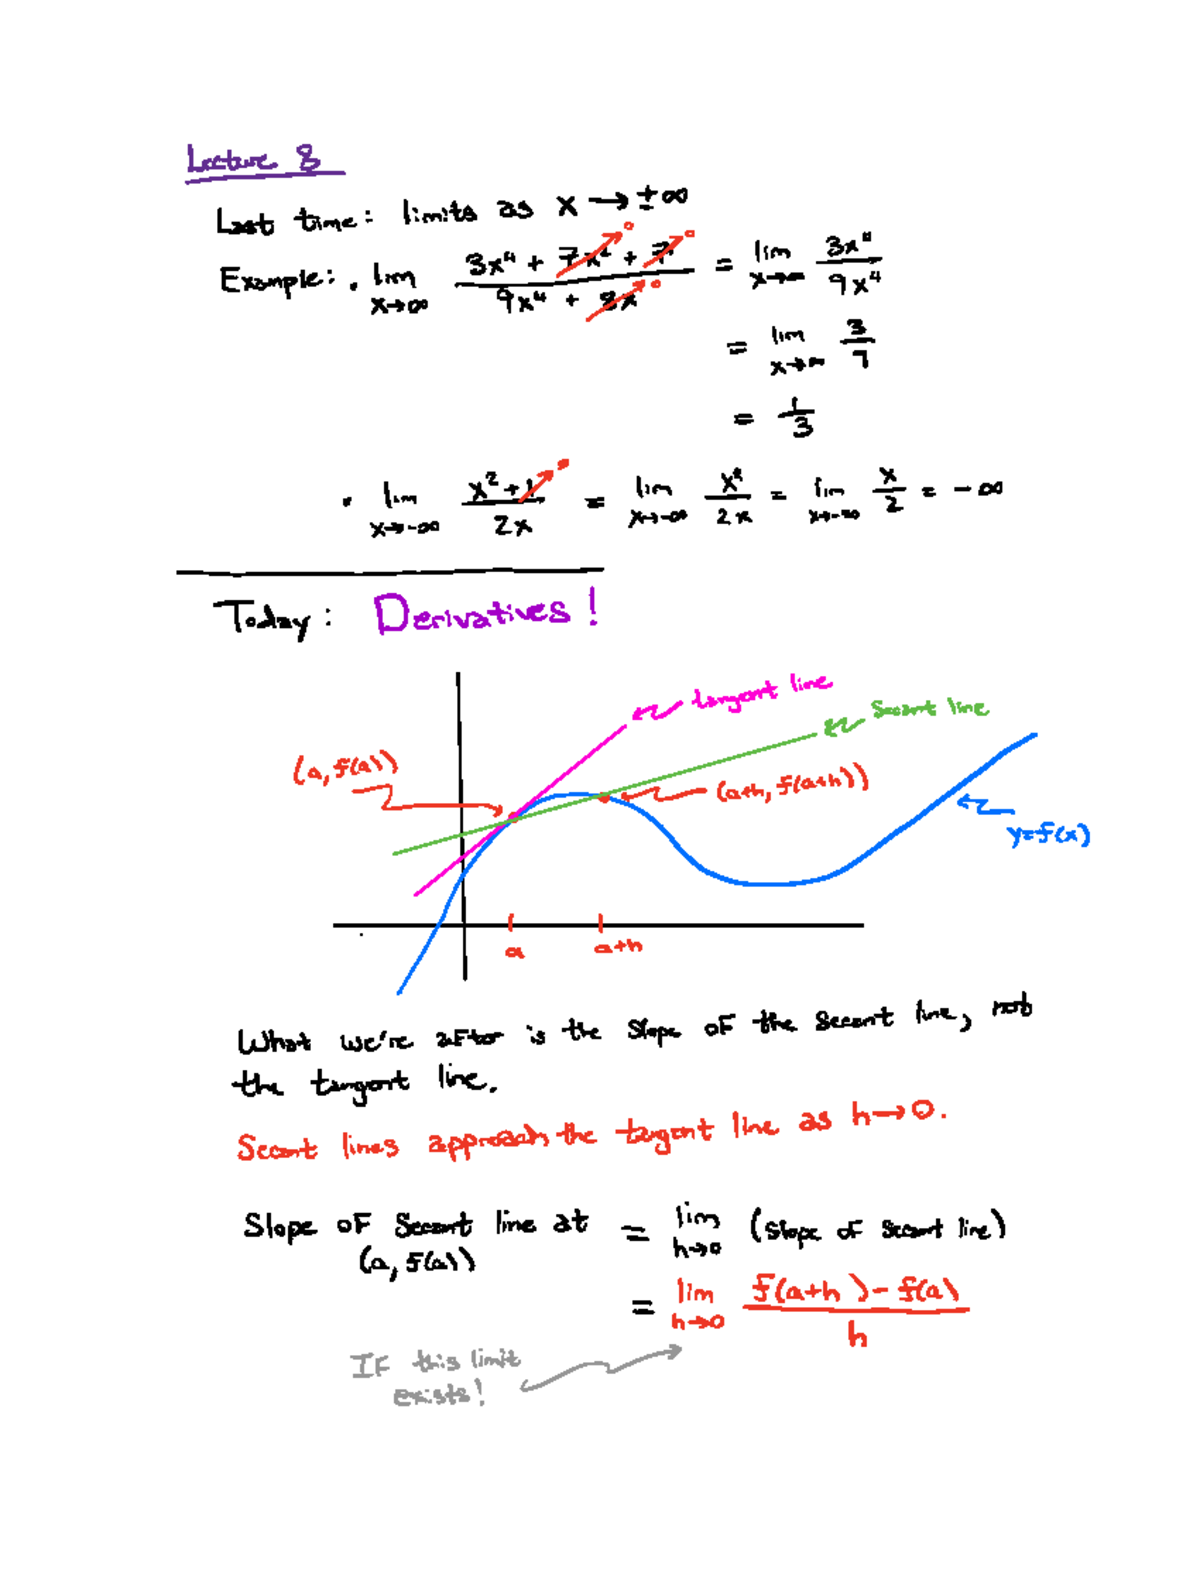 Lecture 8
Last time: limits as x → ±∞
Example: • lim x→∞ (3x⁴ + 7x² + 7)/(9x⁴ + 8x) = lim x→∞ 3x⁴/9x⁴
0 0 0
= lim x→∞ 3/9
= 1/3
• lim x→-∞ (x² + 1)/2x = lim x→-∞ x²/2x = lim x→-∞ x/2 = -∞
Today: Derivatives!
tangent line
secant line
(a, f(a))
(a+h, f(a+h))
y=f(x)
a a+h
What we're after is the slope of the secant line, not
the tangent line.
Secant lines approach the tangent line as h→0.
Slope of secant line at = lim h→0 (slope of secant line)
(a, f(a))
= lim h→0 (f(a+h) - f(a))/h
IF this limit
exists!